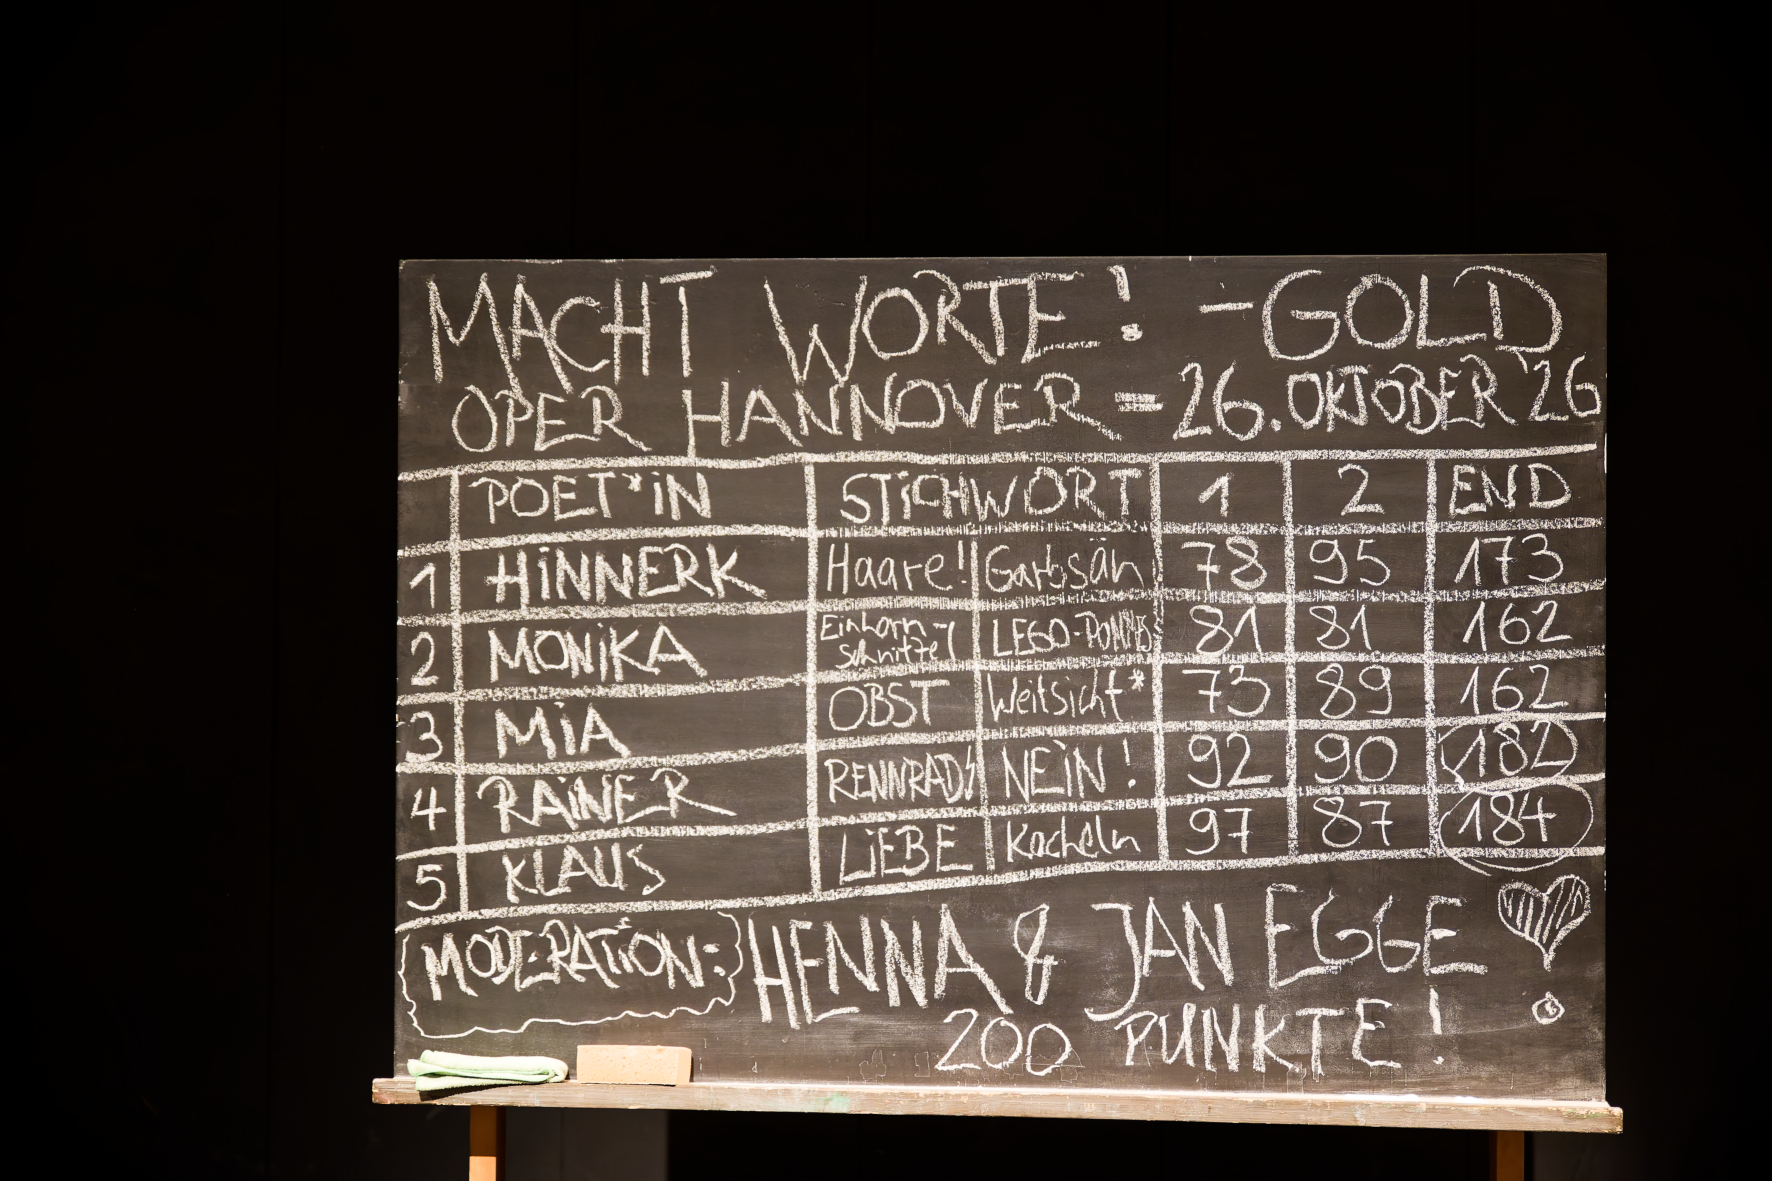 MACHT WORTE! - GOLD
OPER HANNOVER = 26. OKTOBER '26
POET*iN STiCHWORT 1 2 END
1 HiNNERK Haare! Garbsän 78 95 173
2 MONiKA Einhorn-schnitzel LEGO-POMMES 81 81 162
3 MiA OBST Weitsicht* 73 89 162
4 RAiNER RENNRAD NEiN! 92 90 182
5 KLAUS LiEBE Kacheln 97 87 184
MODERATiON: HENNA & JAN EGGE
200 PUNKTE!